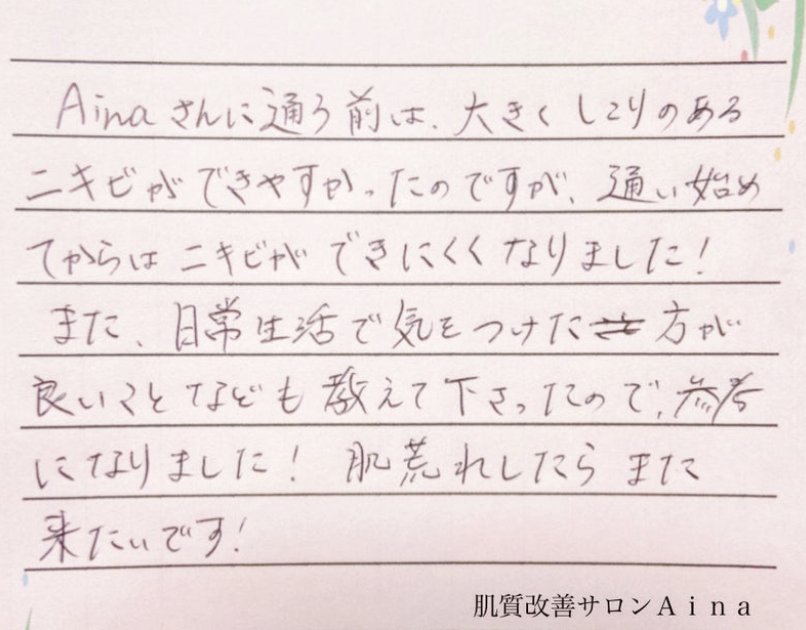 Ainaさんに通う前は、大きくしこりのある
ニキビができやすかったのですが、通い始め
てからはニキビができにくくなりました！
また、日常生活で気をつけた方が
良いことなども教えて下さったので、参考
になりました！ 肌荒れしたらまた
来たいです！
肌質改善サロンＡｉｎａ